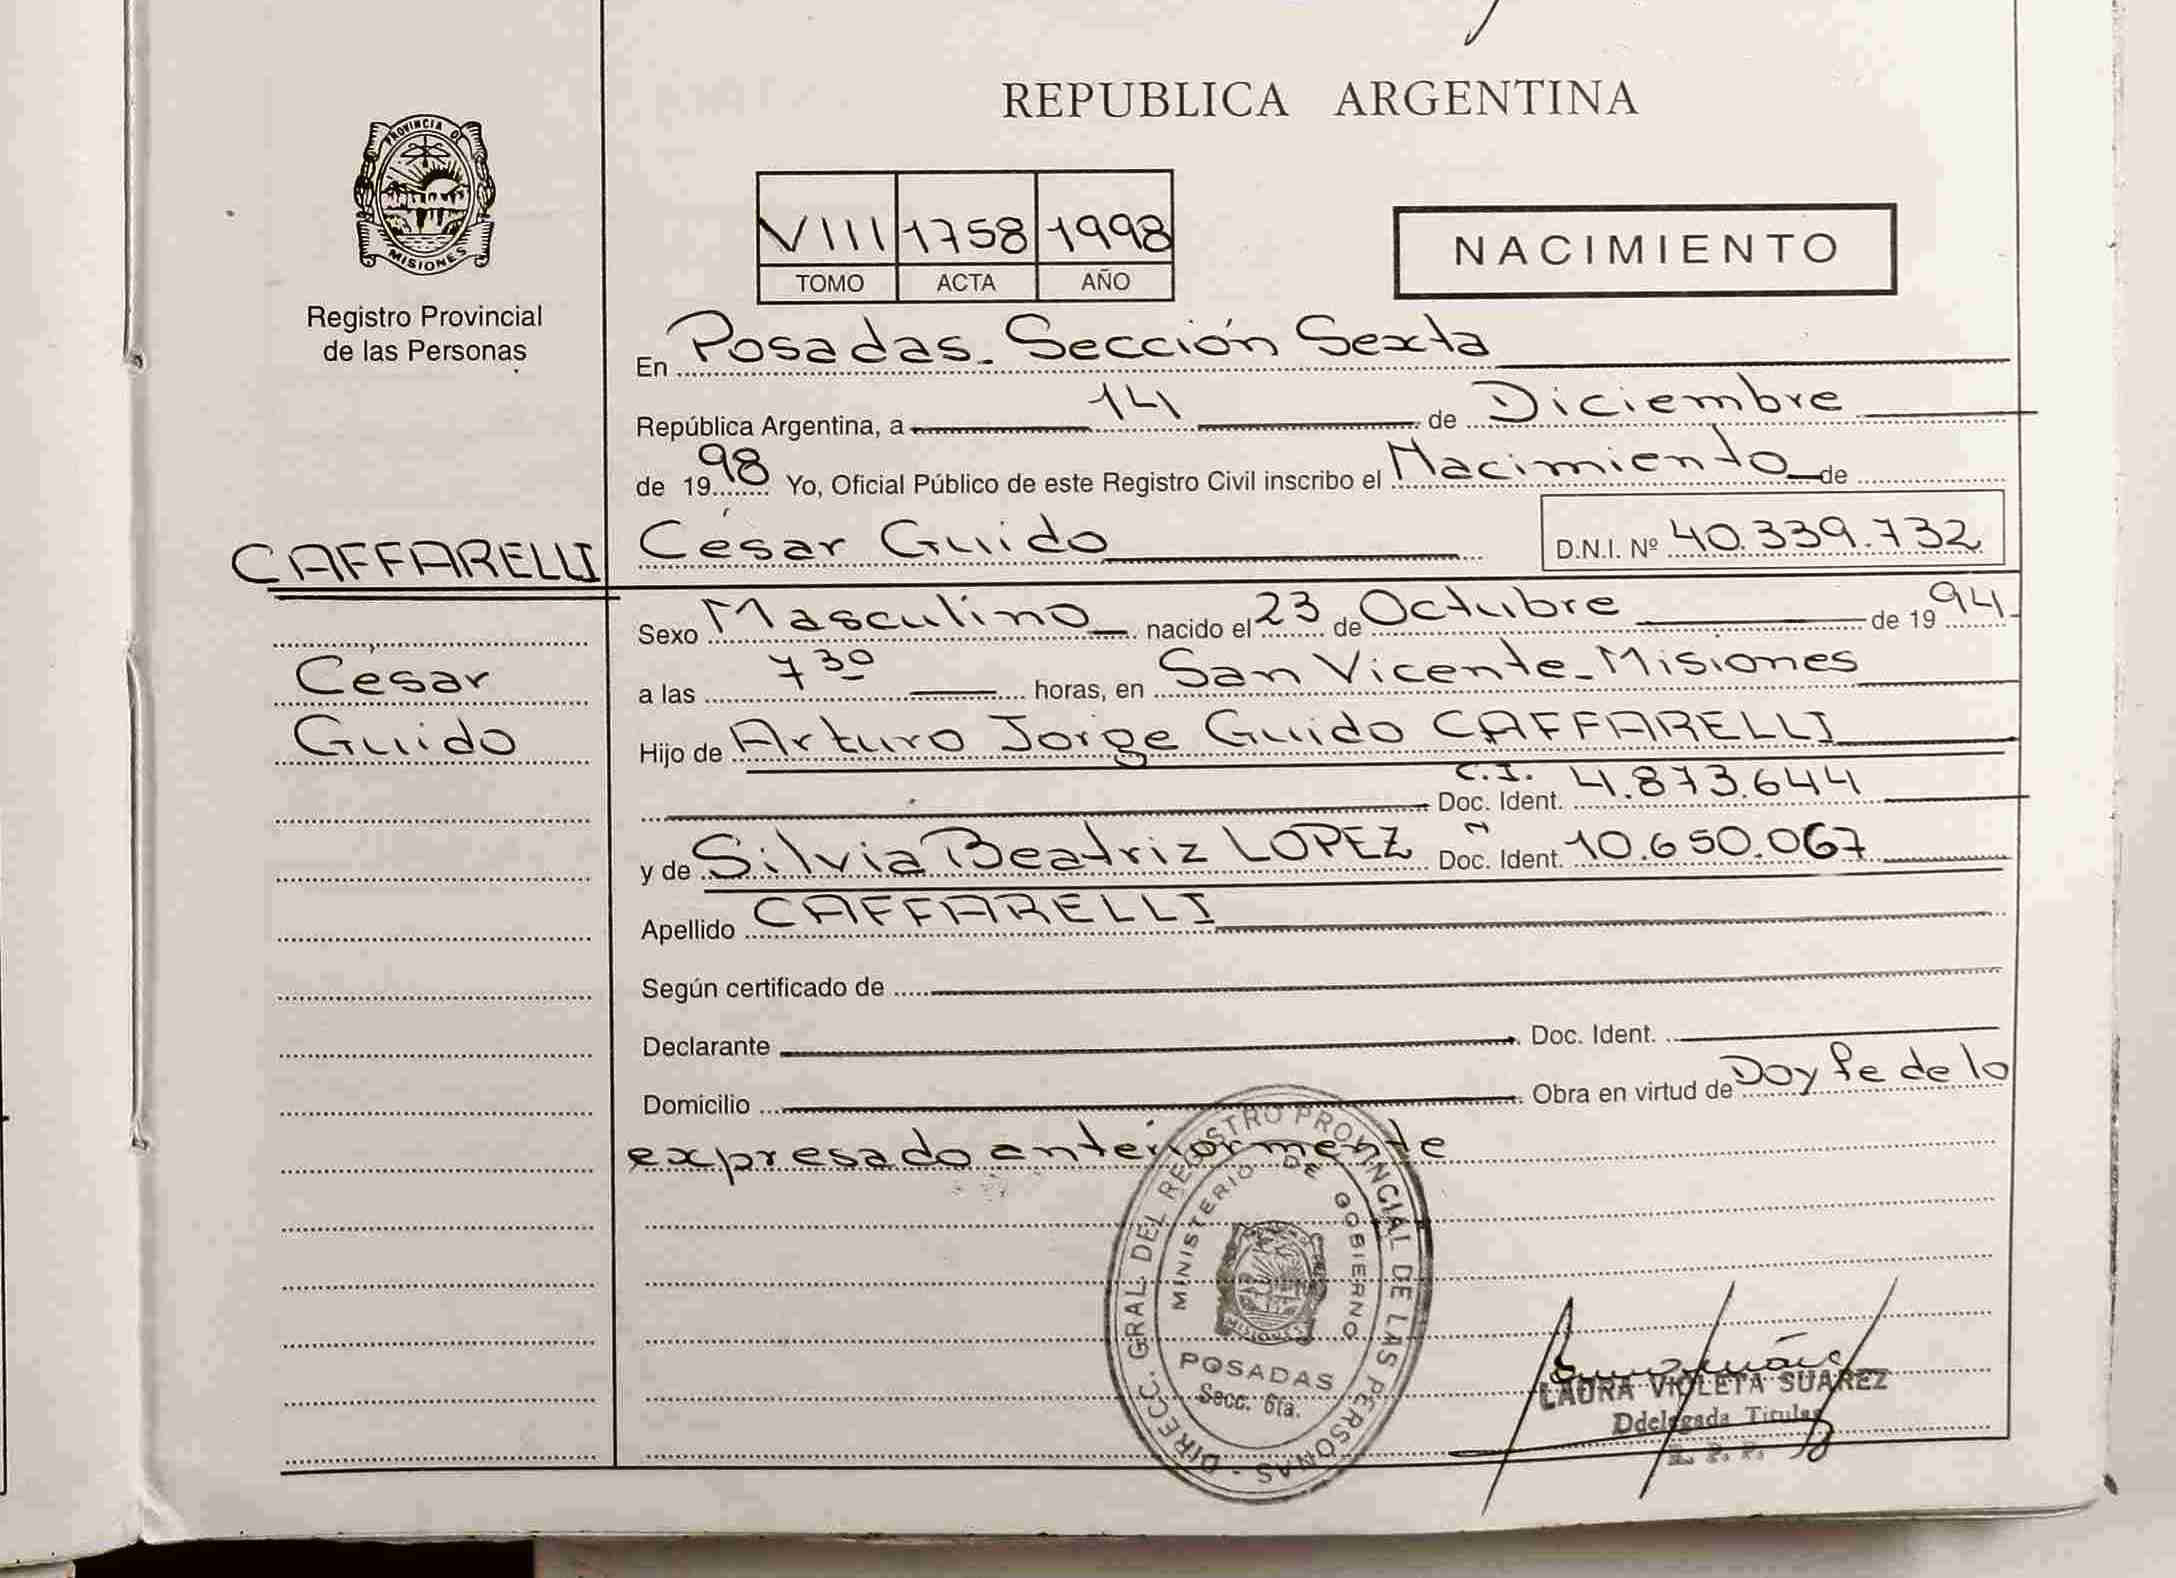 REPUBLICA ARGENTINA
PROVINCIA DE
MISIONES
Registro Provincial
de las Personas
VIII 1758 1998
TOMO ACTA AÑO
NACIMIENTO
En Posadas. Sección Sexta
República Argentina, a 14 de Diciembre
de 1998 Yo, Oficial Público de este Registro Civil inscribo el Nacimiento de
CAFFARELLI
César Guido D.N.I. Nº 40.339.732
César
Guido
Sexo Masculino nacido el 23 de Octubre de 1994
a las 7 30 horas, en San Vicente - Misiones
Hijo de Arturo Jorge Guido CAFFARELLI
C.I.
Doc. Ident. 4.873.644
y de Silvia Beatriz LOPEZ Doc. Ident. 10.650.067
Apellido CAFFARELLI
Según certificado de
Declarante Doc. Ident.
Domicilio Obra en virtud de Doy fe de lo
expresado anteriormente
DIRECC. GRAL DEL REGISTRO PROVINCIAL DE LAS PERSONAS -
MINISTERIO DE GOBIERNO
MISIONES
POSADAS
Secc. 6ta.
LAURA VIOLETA SUAREZ
Ddelegada Titular